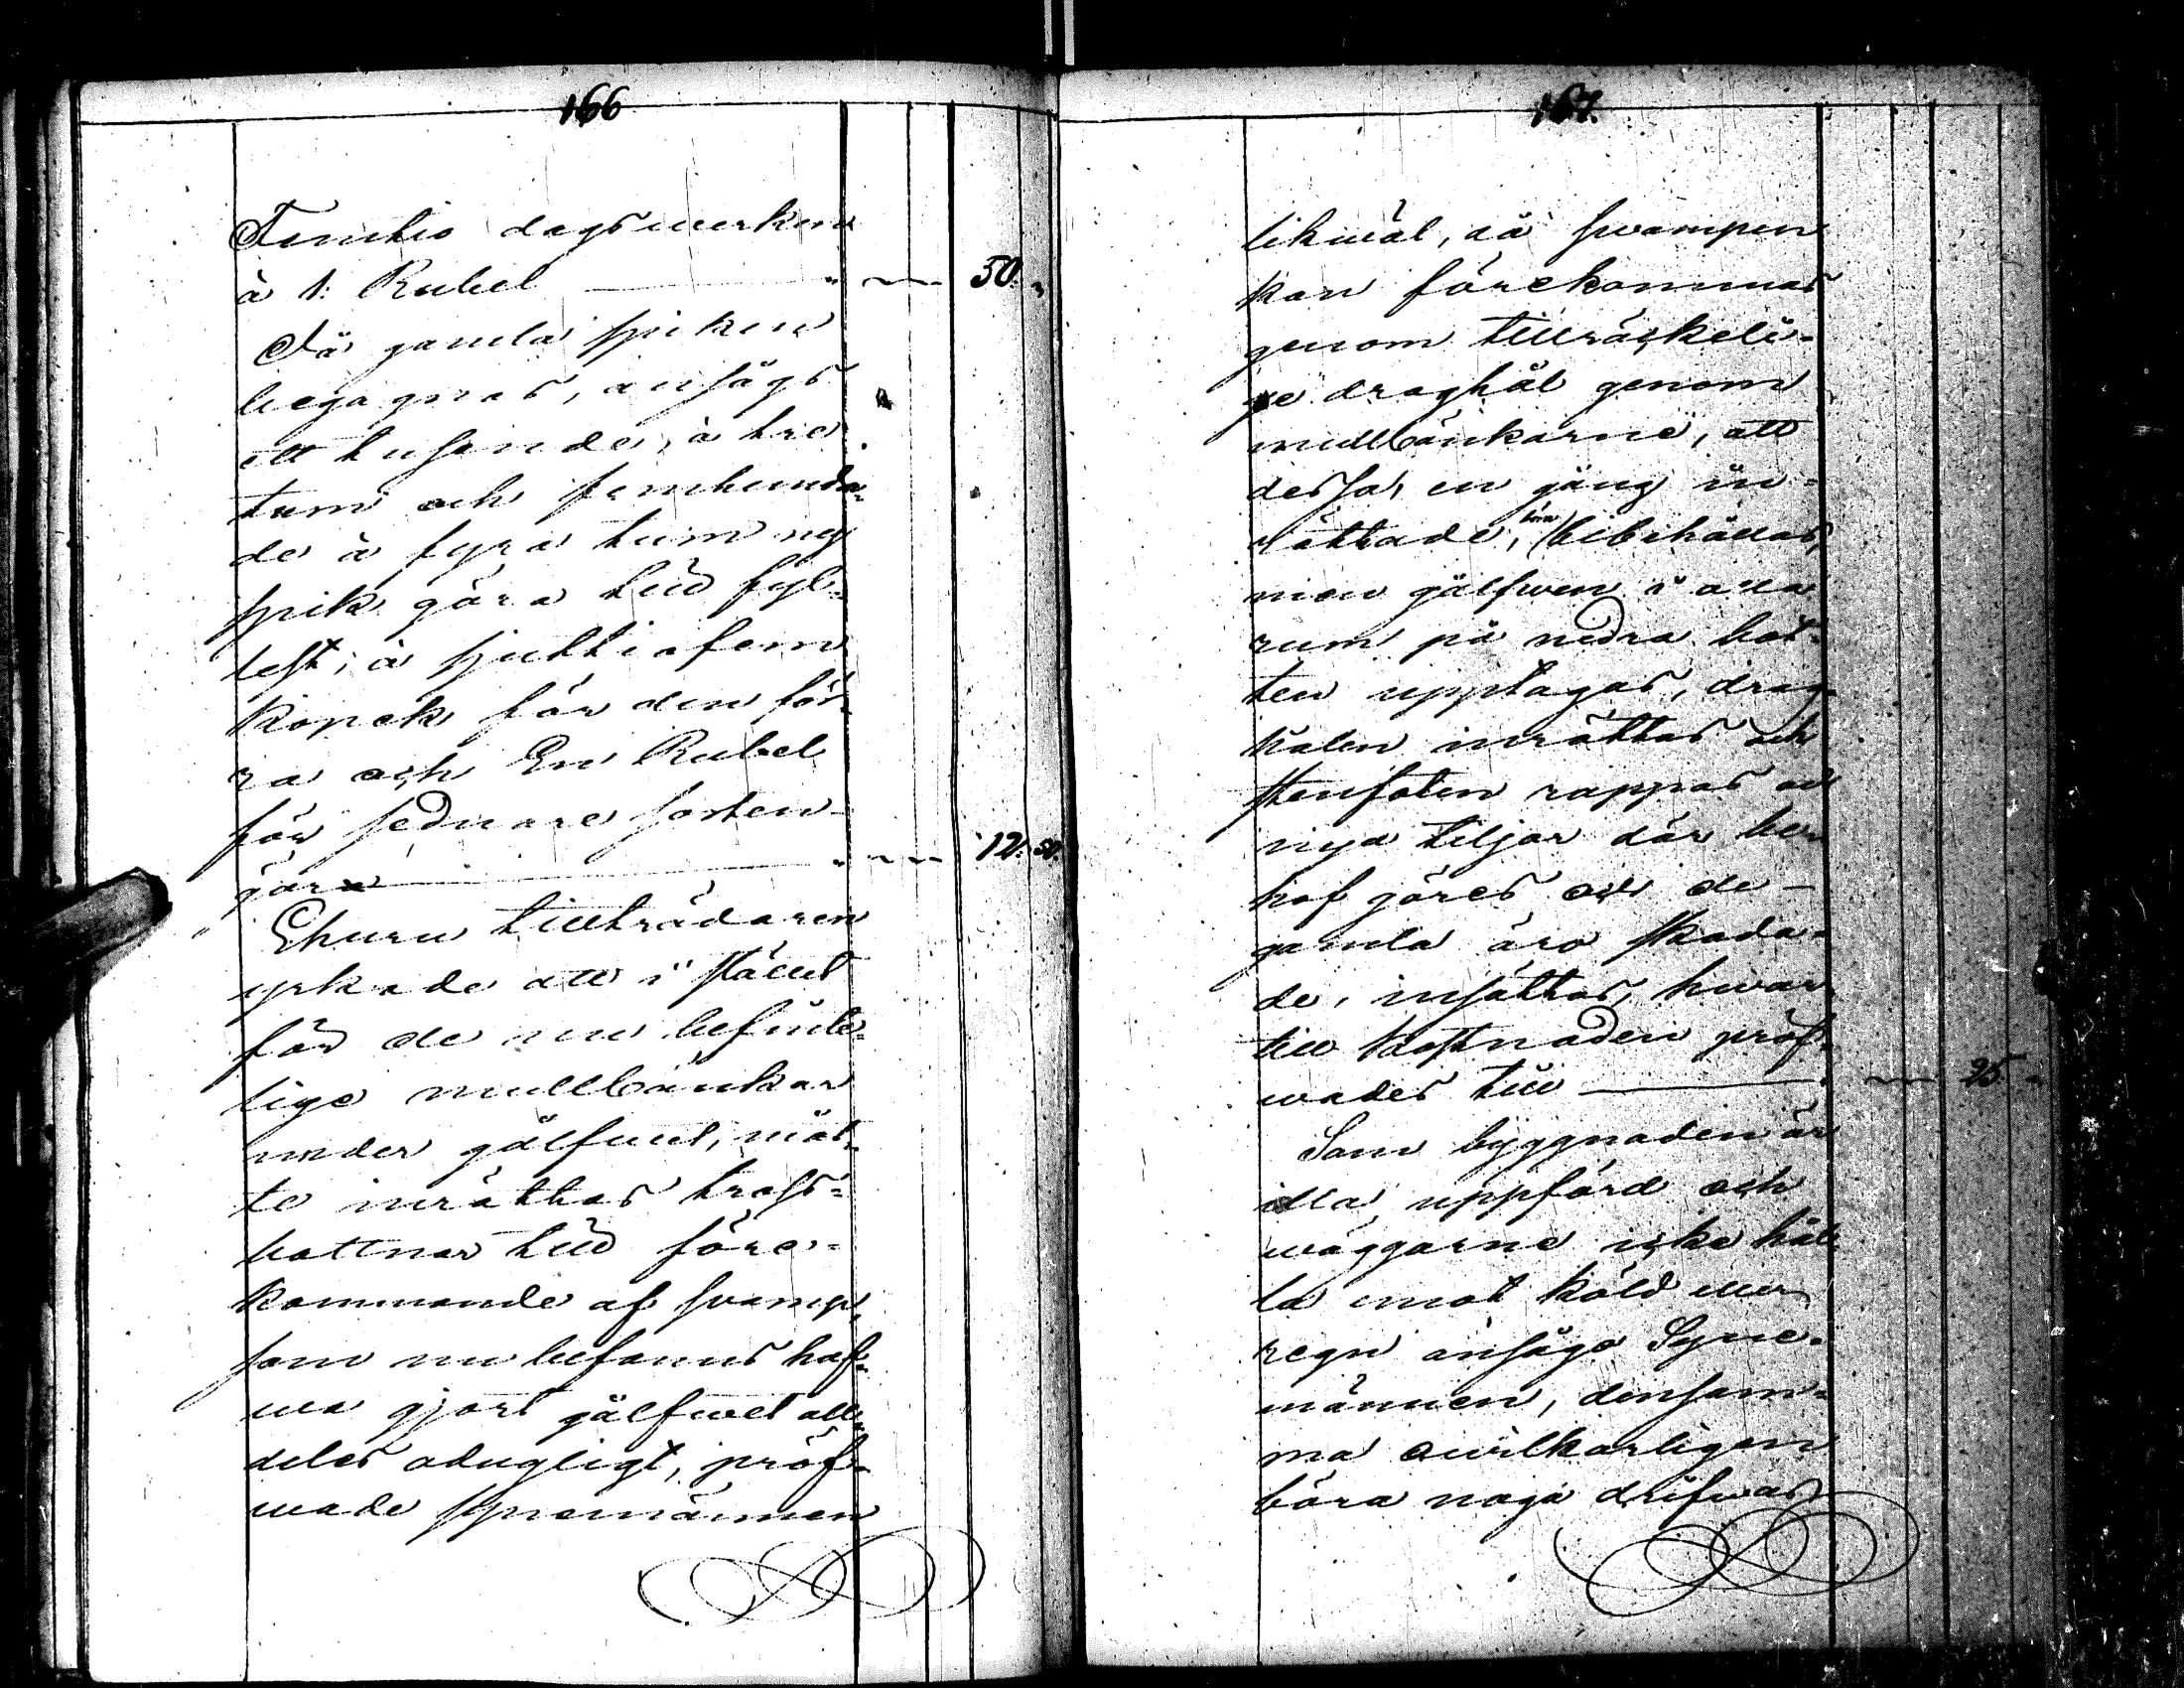 166
Femtio dagsverken
à 1: Rubel — " — 50. "
Då gamla spiken
begagnas, ansågs
ett tusende, à tre
tum och femhundra-
de à fyra tum ny
spik göra tillfyl-
lest; à sjuttiofem
Kopek för den för-
ra och En Rubel
för sednare sorten
gör — " — 12. 50.
Ehuru tillträdaren
yrkade att i stället
för de nu befint-
lige mullbänkar
under gålfvet, måt-
te inrättas tross-
bottnar till före-
kommande af svamp,
som nu befanns haf-
va gjort gålfvet all-
deles odugligt, pröf-
vade Synemännen
167.
likväl, då svampen
kan förekommas
genom tillräckeli-
ge draghål genom
mullbänkarne, att
dessa, en gång in-
rättade, böra bibehållas,
men gålfven i alla
rum på nedra bot-
ten upptagas, drag-
hålen inrättas och
stenfoten rappas och
nya tiljor där be-
hof göres och de
gamla äro skada-
de, insättas, hvar-
till kostnaden pröf-
vades till — 25. "
Som byggnaden är
illa uppförd och
väggarne icke hål-
la emot köld eller
regn ansågo Syne-
männen, densam-
ma ovilkorligen
böra noga drifvas